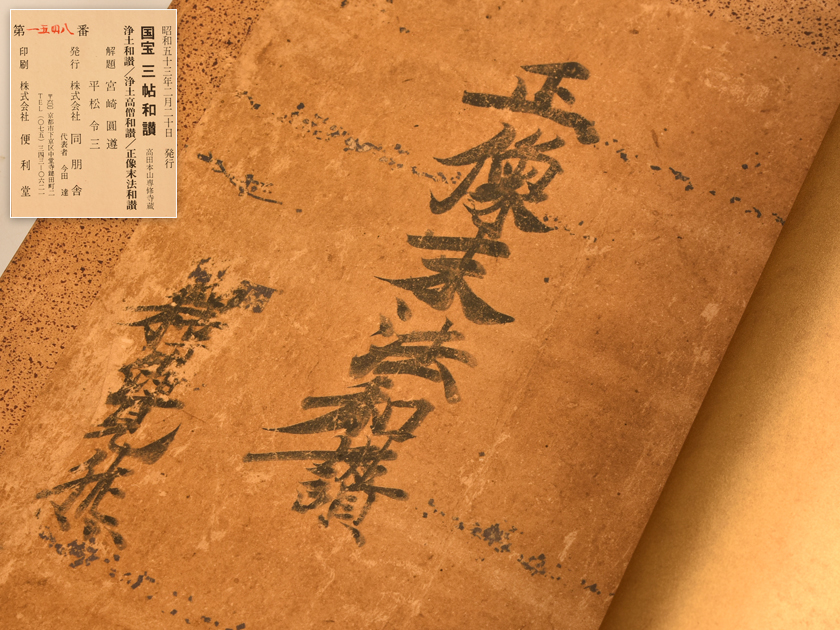 昭和五十三年二月二十日 発行
国宝 三帖和讃 高田本山専修寺蔵
浄土和讃／浄土高僧和讃／正像末法和讃
解題 宮崎圓遵
平松令三
発行 株式会社 同朋舎
代表者 今田達
京都市下京区中堂寺鍵田町二
TEL(〇七五)三四三一〇六二一
印刷 株式会社 便利堂
第一五四八番
正像末法和讃
釋覺然